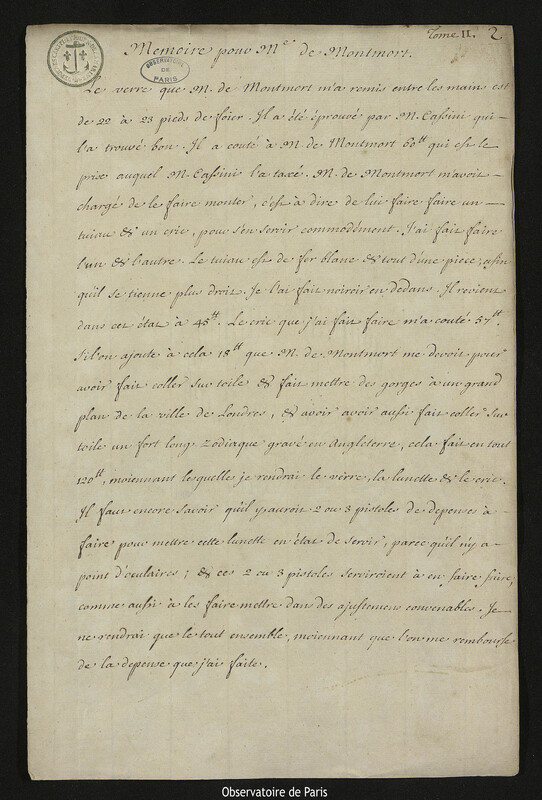 Tome II. 2
Memoire pour Mr. de Montmort.
OBSERVATOIRE
DE
PARIS
Le verre que M. de Montmort m'a remis entre les mains est
de 22 à 23 pieds de foier. Il a été éprouvé par M. Cassini qui
l'a trouvé bon. Il a couté à M. de Montmort 60tt qui est le
prix auquel M. Cassini l'a taxé. M. de Montmort m'avoit
chargé de le faire monter, c'est à dire de lui faire faire un
tuiau & un cric, pour s'en servir commodément. J'ai fait faire
l'un & l'autre. Le tuiau est de fer blanc & tout d'une piece; afin
qu'il se tienne plus droit. Je l'ai fait noircir en dedans. Il revient
dans cet état à 45tt. Le cric que j'ai fait faire m'a couté 57tt.
Si l'on ajoute à cela 18tt que M. de Montmort me devoit pour
avoir fait coller sur toile & fait mettre des gorges à un grand
plan de la ville de Londres, & avoir avoir aussi fait coller sur
toile un fort long Zodiaque gravé en Angleterre, cela fait en tout
120tt, moiennant lesquelles je rendrai le verre, la lunette & le cric.
Il faut encore savoir qu'il y auroit 2 ou 3 pistoles de depenses à
faire pour mettre cette lunette en état de servir, parce qu'il n'y a
point d'oculaires; & ces 2 ou 3 pistoles serviroient à en faire faire,
comme aussi à les faire mettre dans des ajustemens convenables. Je
ne rendrai que le tout ensemble, moiennant que l'on me rembourse
de la depense que j'ai faite.
Observatoire de Paris